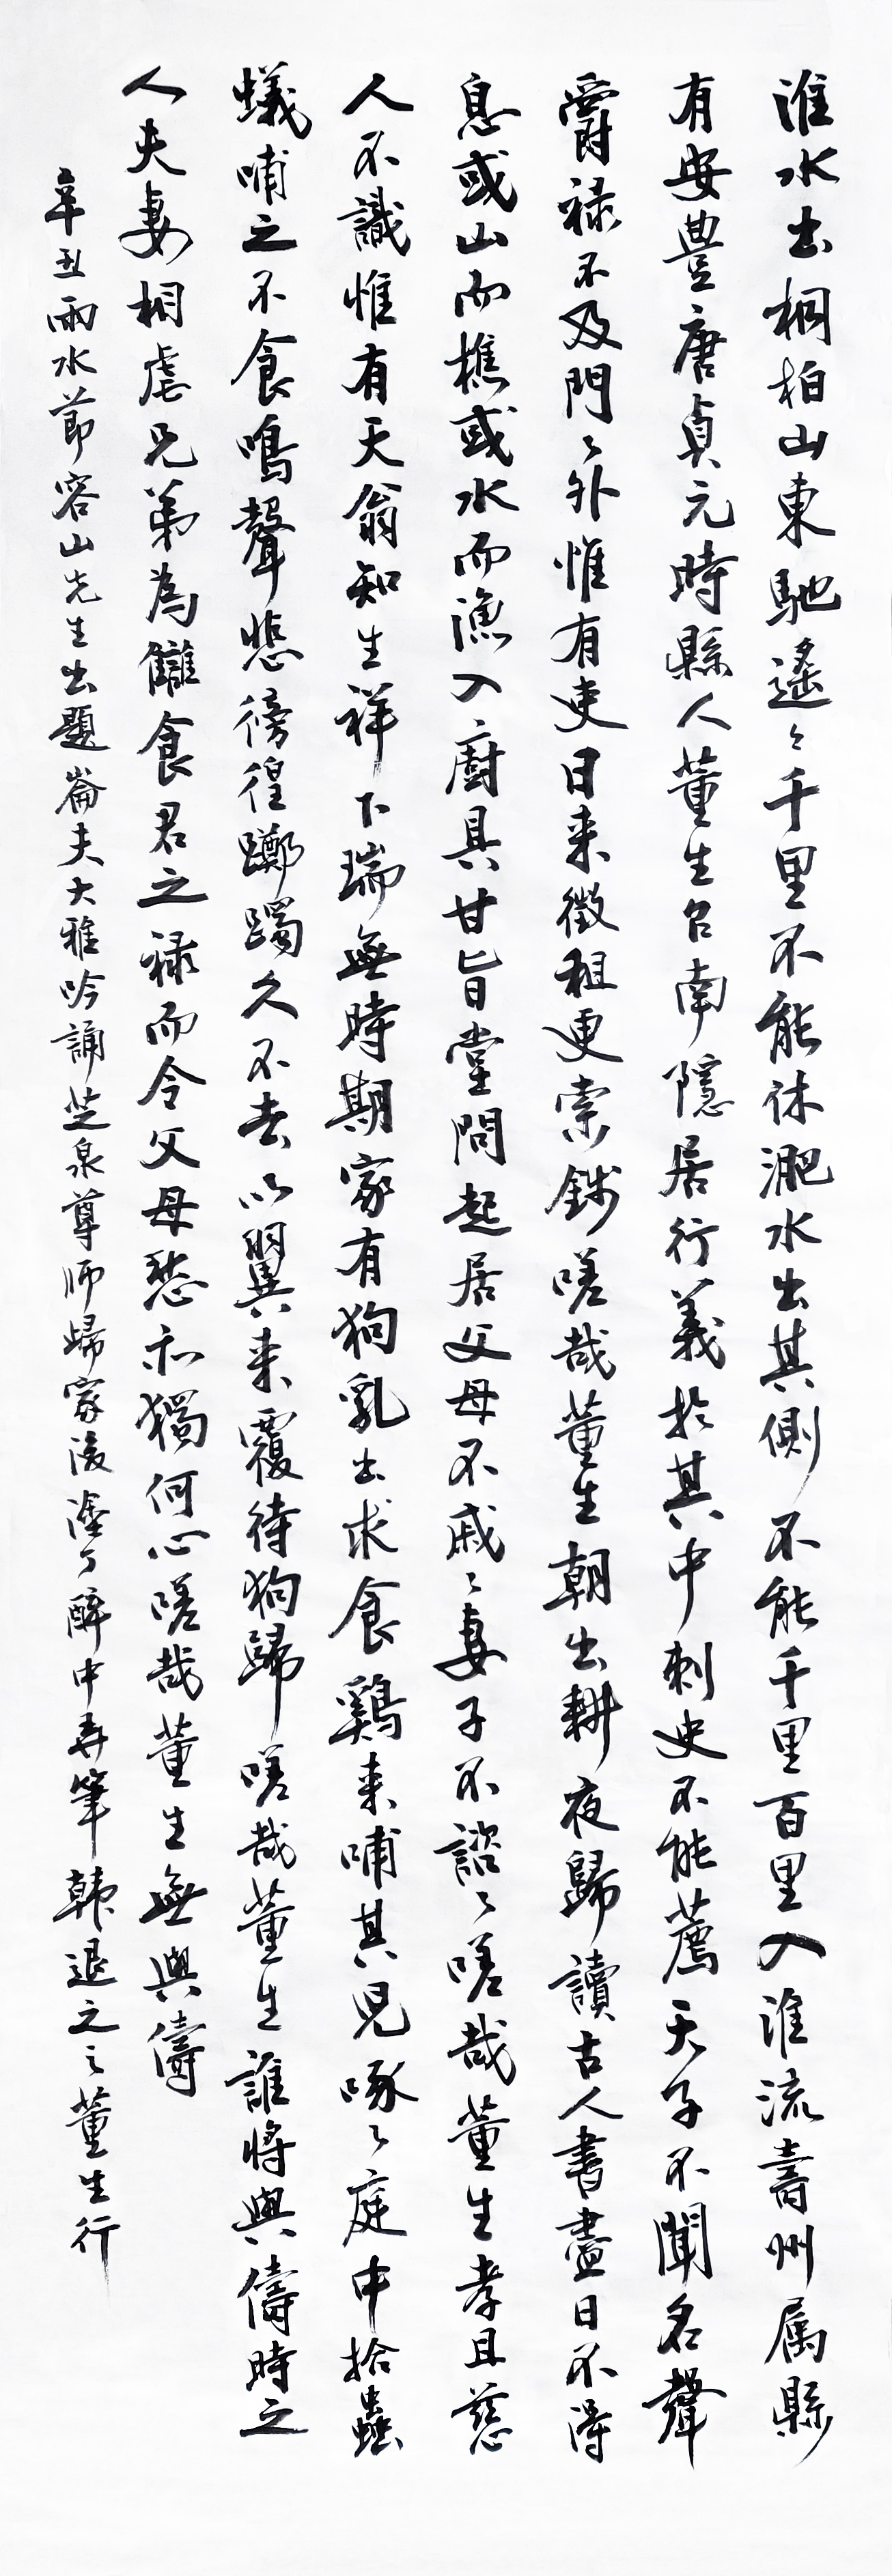 淮水出桐柏山東馳遙〻千里不能休淝水出其側不能千里百里入淮流壽州属縣
有安豊唐貞元時縣人董生召南隱居行義於其中刺史不能薦天子不聞名聲
爵祿不及門〻外惟有吏日来徵租更索錢嗟哉董生朝出耕夜歸讀古人書盡日不得
息或山而樵或水而漁入廚具甘旨堂問起居父母不慼〻妻子不諮〻嗟哉董生孝且慈
人不識惟有天翁知生祥下瑞無時期家有狗乳出求食鷄来哺其兒啄〻庭中拾蟲
蟻哺之不食鳴聲悲徬徨躑躅久不去以翼来覆待狗歸嗟哉董生誰將與儔時之
人夫妻相虐兄弟為讎食君之祿而令父母愁亦獨何心嗟哉董生無與儔
辛丑雨水節容山先生出題崙夫大雅吟誦芝泉尊師歸家後塗了醉中弄筆韓退之〻董生行